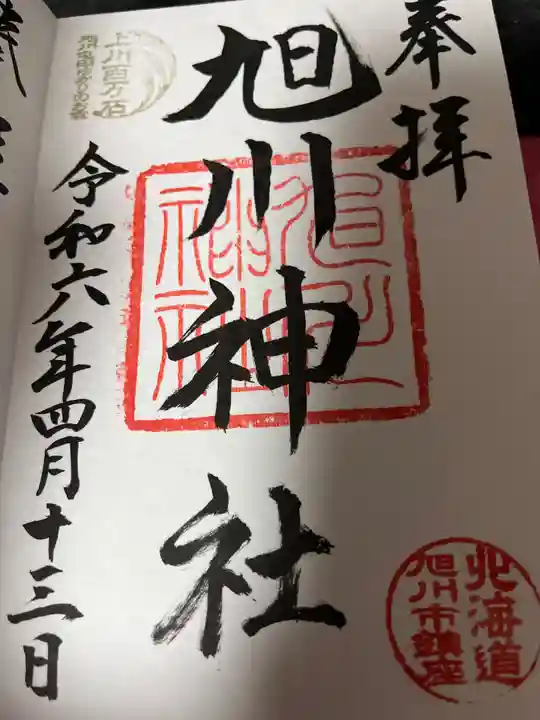 奉拝
旭川神社
旭川神社
令和六年四月十三日
上川百万石
北海道
旭川市鎮座